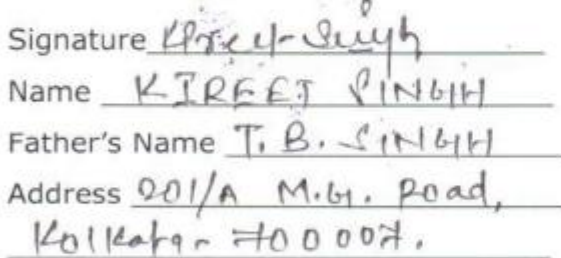 Signature Kireet Singh
Name KIREET SINGH
Father's Name T. B. SINGH
Address 201/A M.G. Road,
Kolkata - 700007.